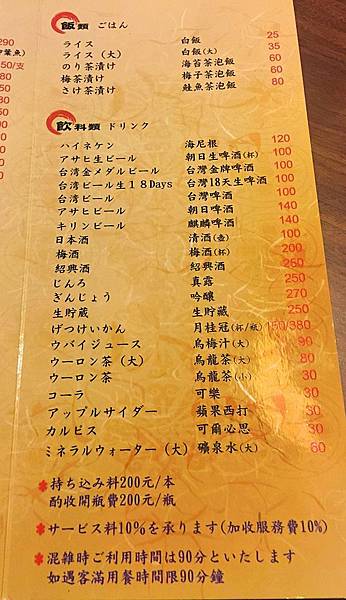 290
（葉魚）
50/支
80
80
飯類 ごはん
ライス 白飯 25
ライス（大） 白飯(大) 35
のり茶漬け 海苔茶泡飯 60
梅茶漬け 梅子茶泡飯 60
さけ茶漬け 鮭魚茶泡飯 80
飲料類 ドリンク
ハイネケン 海尼根 120
アサヒ生ビール 朝日生啤酒(杯) 100
台湾金メダルビール 台灣金牌啤酒 100
台湾ビール生１８Days 台灣18天生啤酒 100
台湾ビール 台灣啤酒 100
アサヒビール 朝日啤酒 140
キリンビール 麒麟啤酒 140
日本酒 清酒(壺) 100
梅酒 梅酒(杯) 200
紹興酒 紹興酒 250
じんろ 真露 250
ぎんじょう 吟釀 270
生貯蔵 生貯藏 250
げつけいかん 月桂冠(杯/瓶) 150/380
ウバイジュース 烏梅汁(大) 90
ウーロン茶（大） 烏龍茶(大) 80
ウーロン茶 烏龍茶(小) 30
コーラ 可樂 30
アップルサイダー 蘋果西打 30
カルピス 可爾必思 30
ミネラルウォーター（大） 礦泉水(大) 60
＊持ち込み料200元/本
酌收開瓶費200元/瓶
＊サービス料10％を承ります(加收服務費10%)
＊混雑時ご利用時間は90分といたします
如遇客滿用餐時間限90分鐘